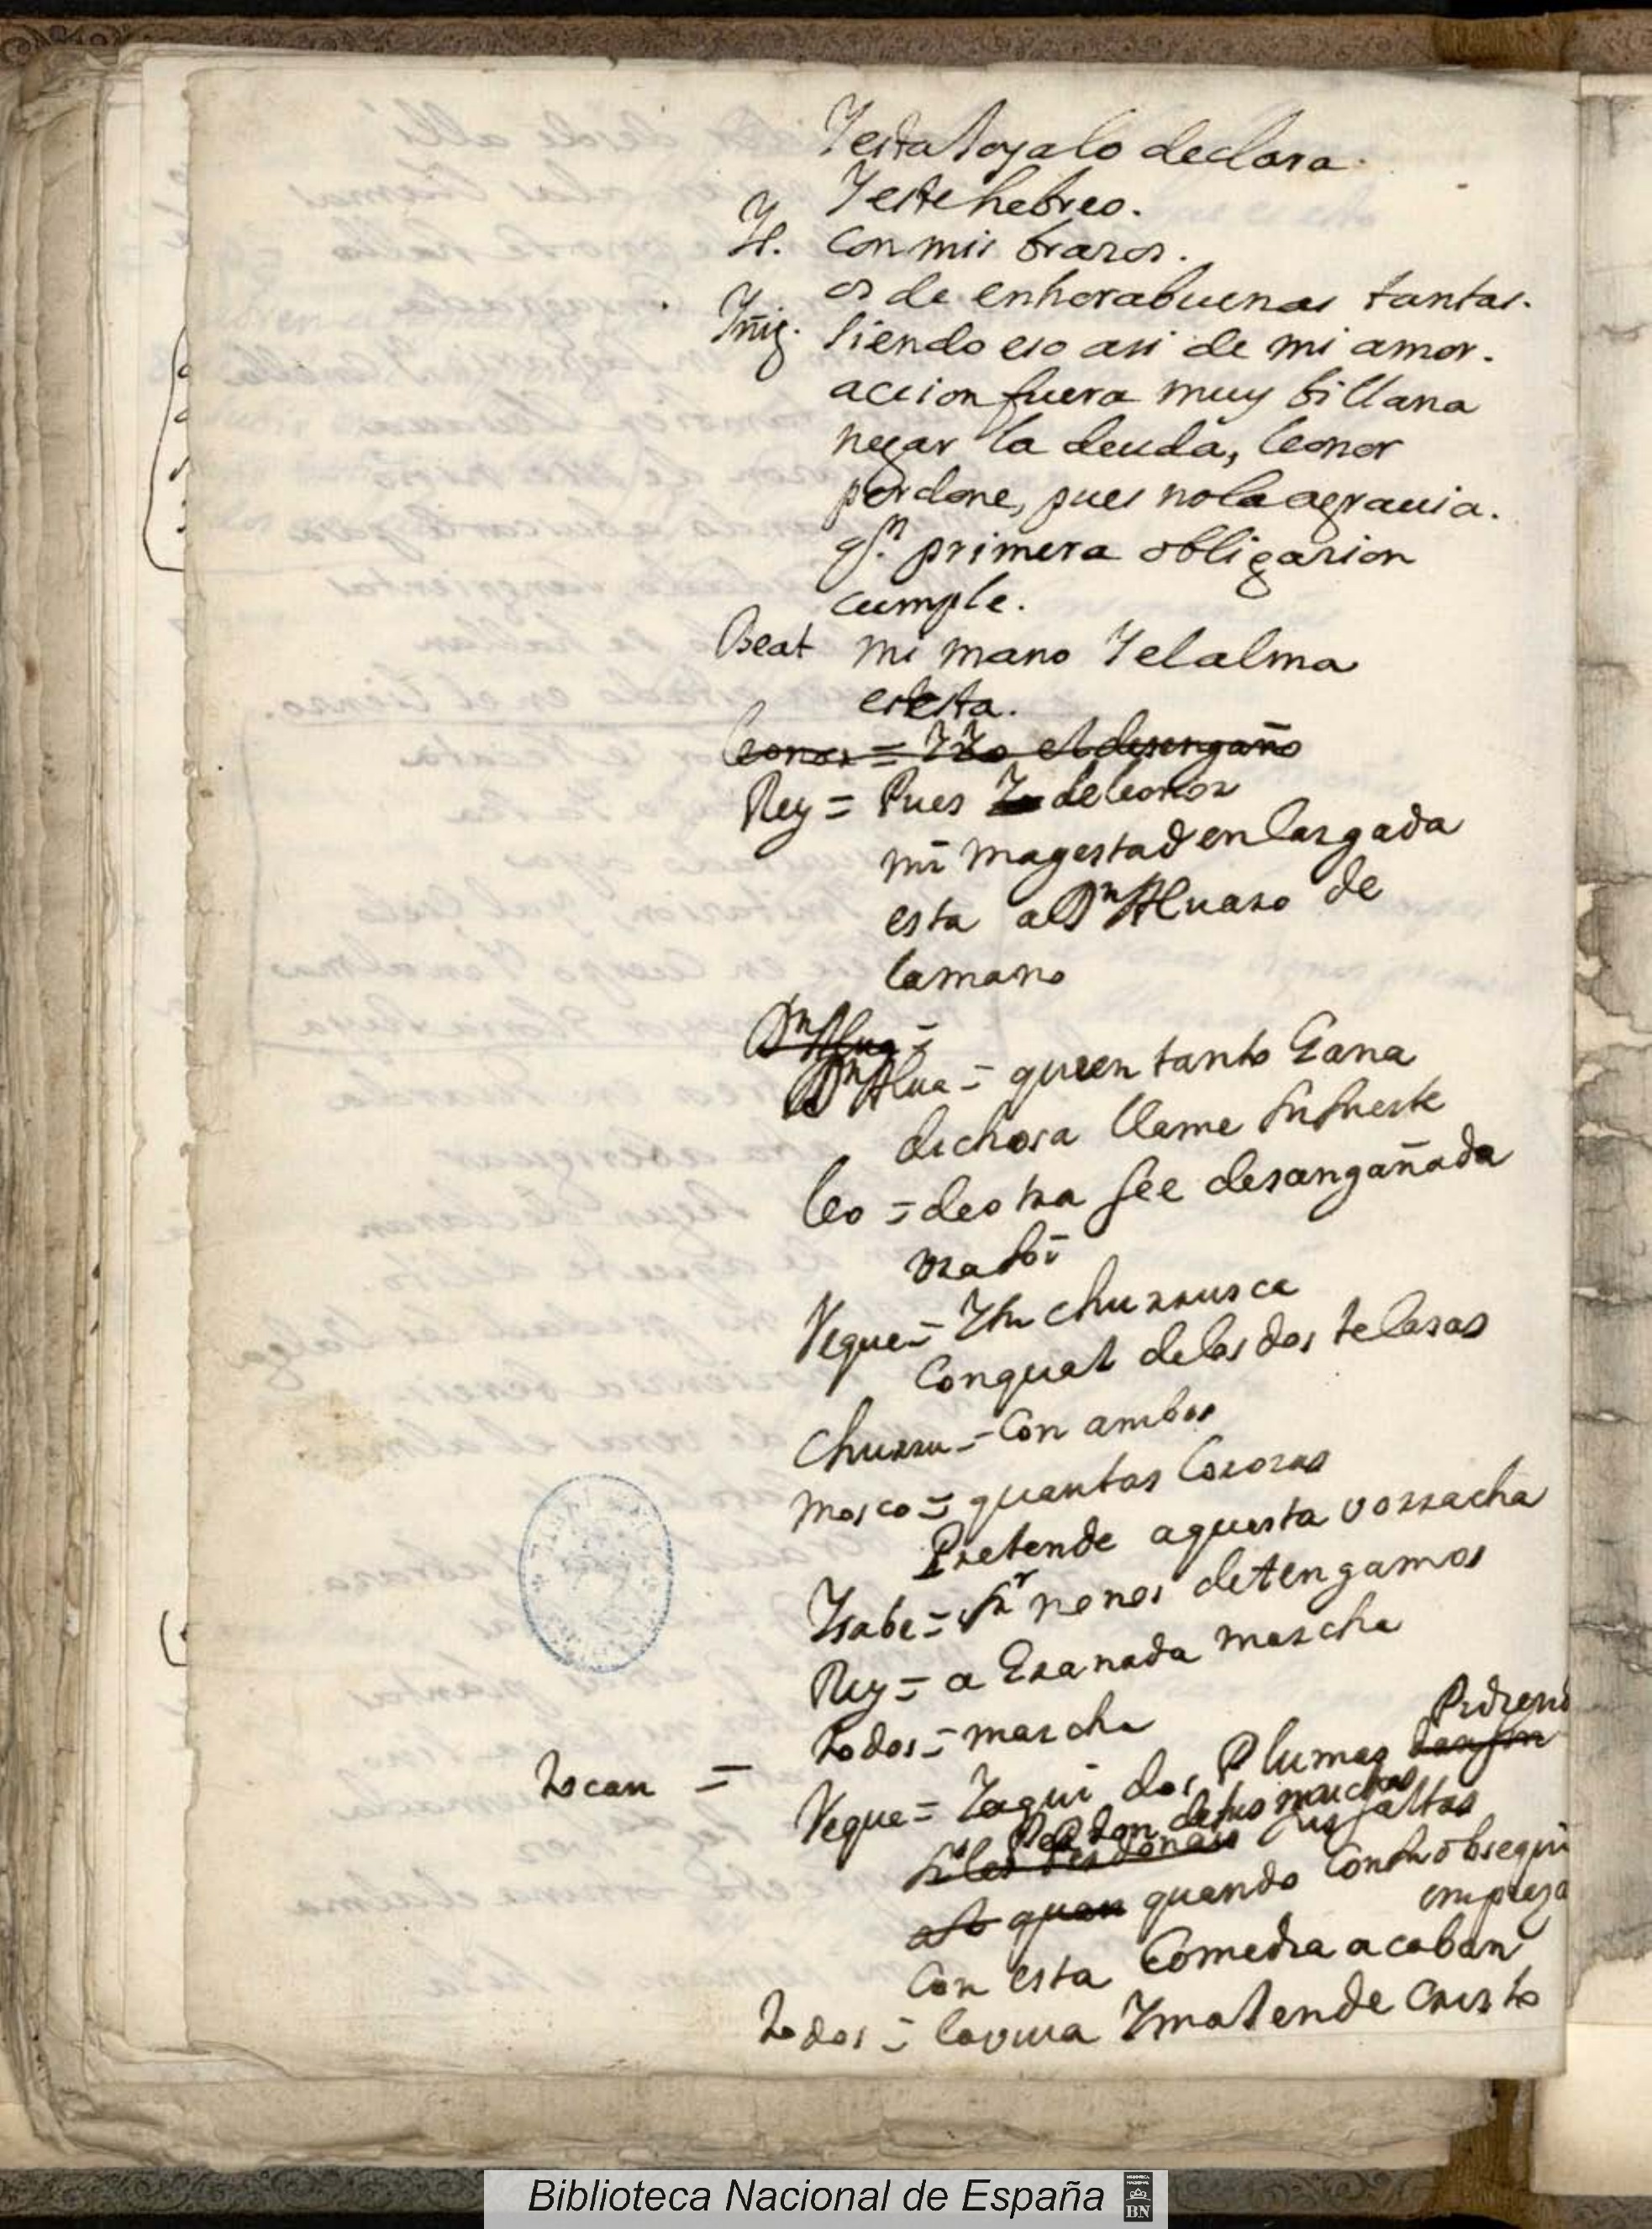 Y esta Joya lo declara.
Y este hebreo.
Y. con mis brazos.
os de enhorabuenas tantas.
Iñig. siendo eso asi de mi amor.
accion fuera muy billana
negar la deuda, leonor
perdone, pues no la agrauia.
qn. primera obligazion
cumple.
Beat mi mano Y el alma
es esta.
leonor = Y Yo el desengaño
Rey = Pues de leonor
mi magestad enlargada
esta a Dn Aluaro de
la mano
Dn Alua =
Dn Alua = quien tanto Gana
dichosa llame su suerte
leo = de otra fee desangañada
vra soi
Vegue = Y tu churrusca
Conqual de los dos te lasas
Churru = Con ambos
Mosco = quantas Corozas
Pretende aquesta vorracha
Ysabe = Sr no nos detengamos
Rey = a Granada marcha
todos = marcha
tocan =
Pidien
Vegue = Y aqui dos Plumas
Perdon de sus muchas faltas
quando Con su obsequi
empieza
Con esta Comedia acaban
todos = la viua Ymajen de Cristo
Biblioteca Nacional de España
BN